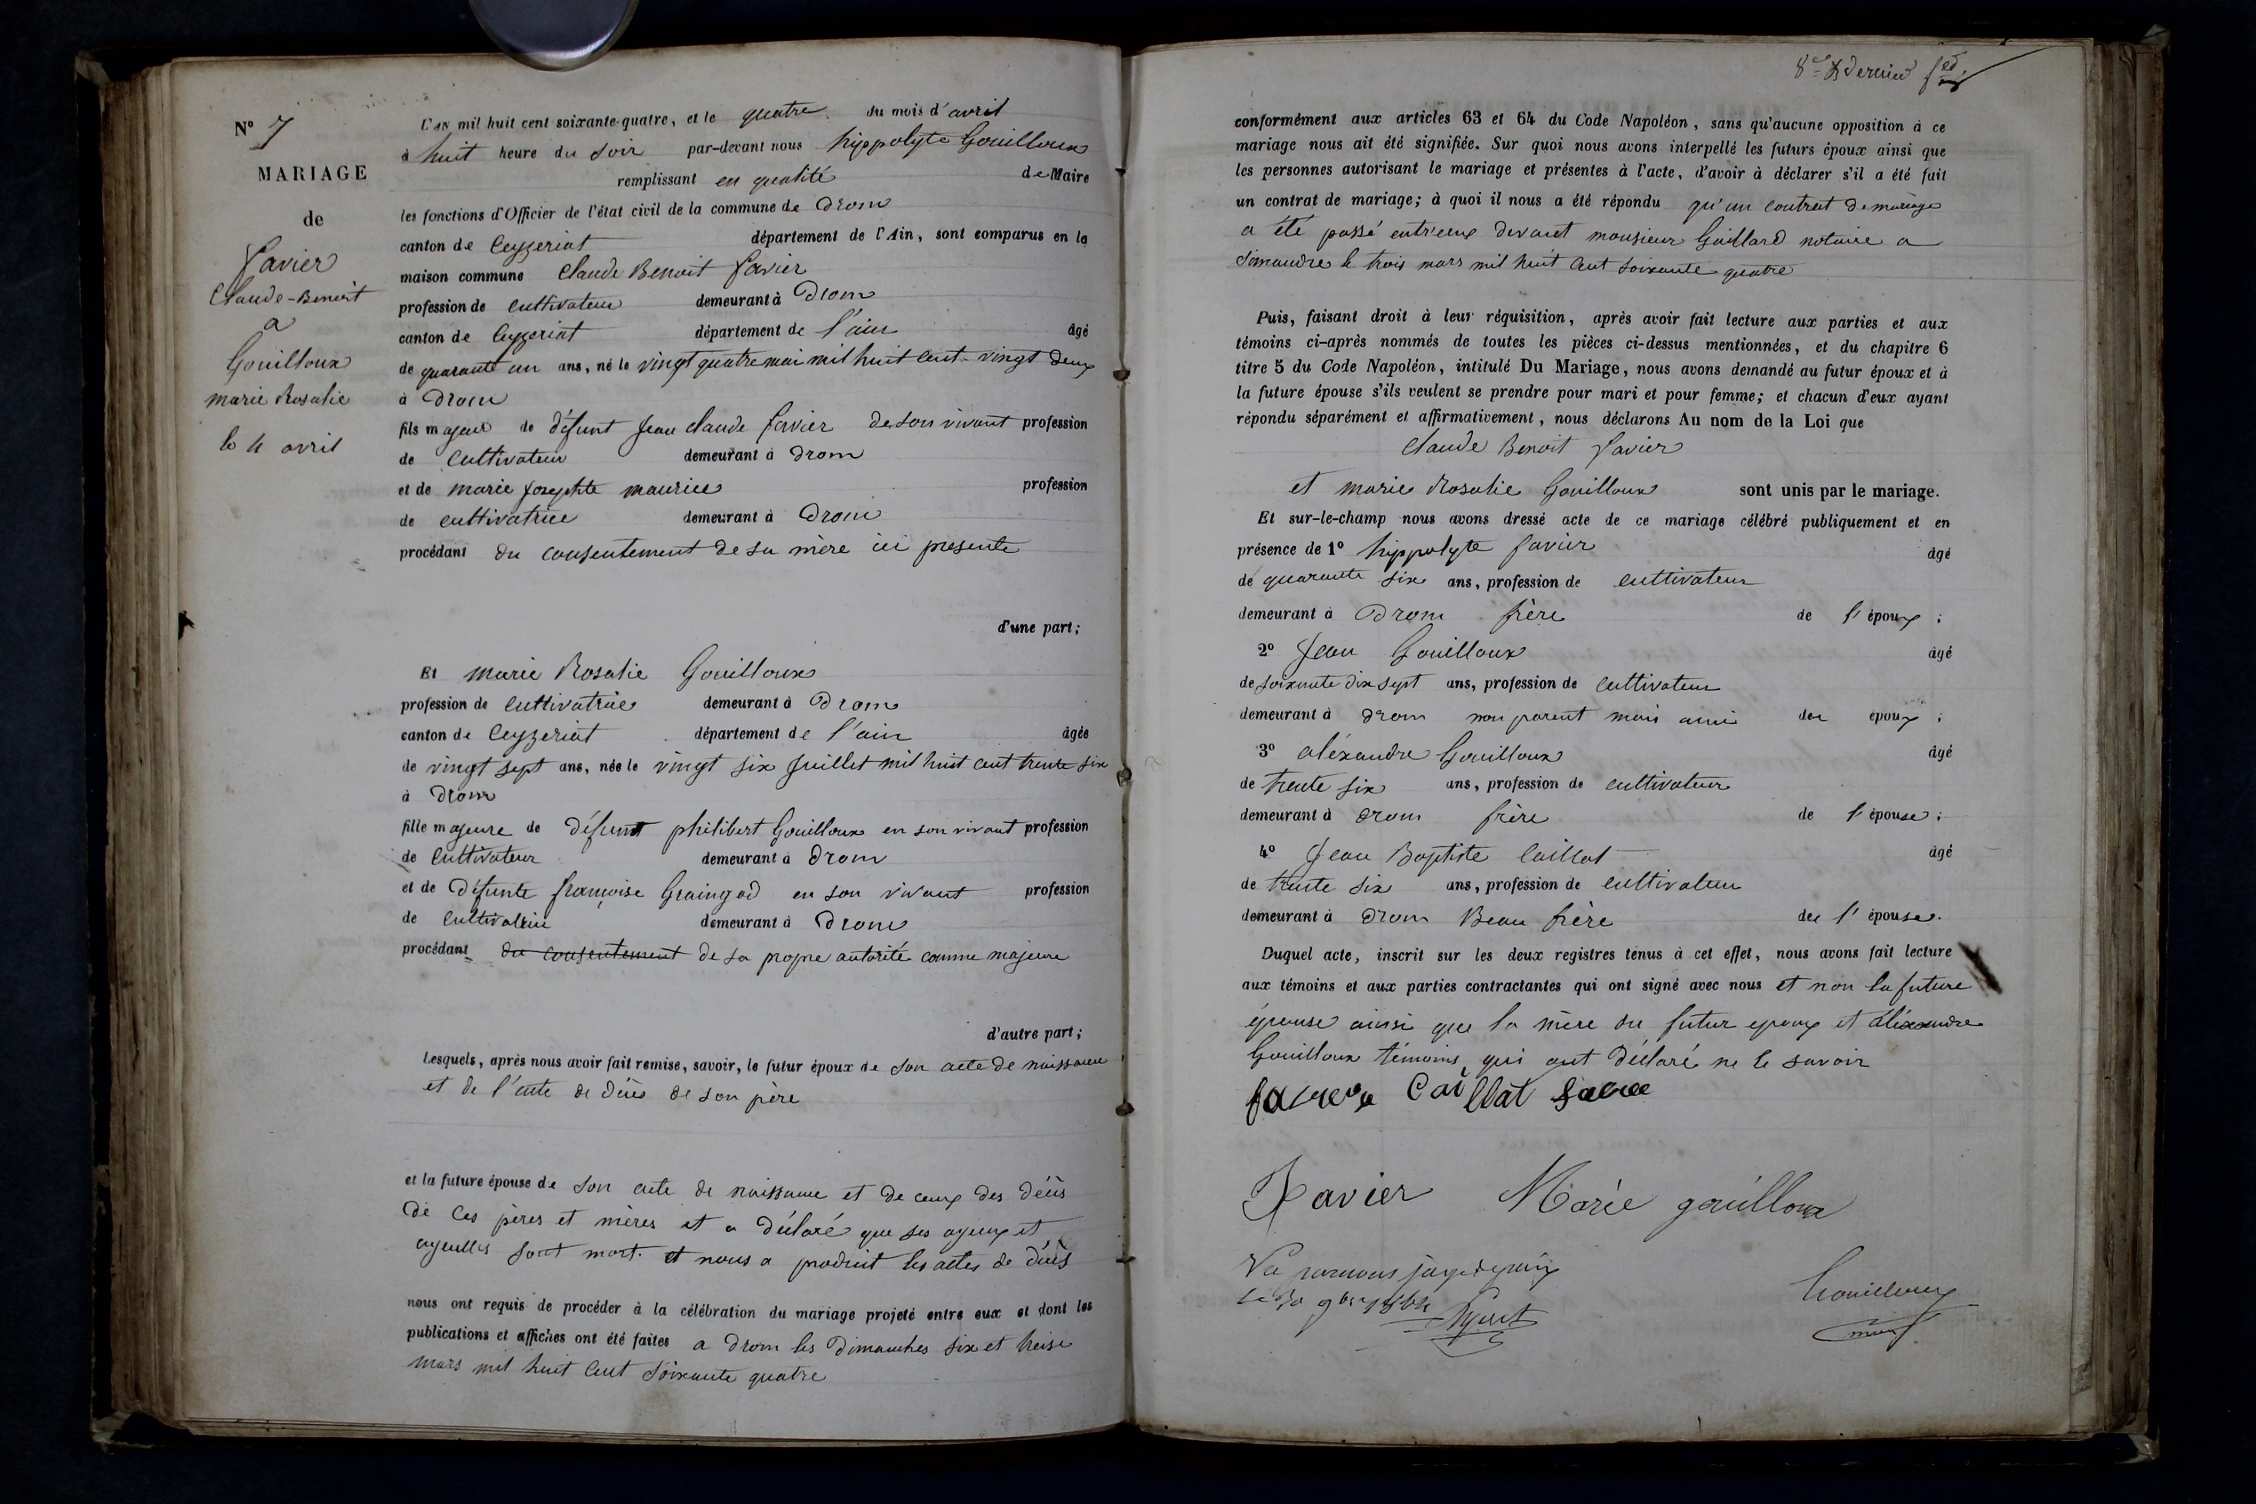 N° 7
MARIAGE
de
Favier
Claude-Benoit
a
Gouilloux
marie Rosalie
le 4 avril
L'an mil huit cent soixante-quatre, et le quatre du mois d'avril
à huit heure du soir par-devant nous hippolyte Gouilloux
remplissant en qualité de Maire
les fonctions d'Officier de l'état civil de la commune de Drom
canton de Ceyzeriat département de l'Ain, sont comparus en la
maison commune Claude Benoit favier
profession de cultivateur demeurant à Drom
canton de Ceyzeriat département de l'ain âgé
de quarante un ans, né le vingt quatre mai mil huit cent vingt deux
à Drom
fils majeur de défunt Jean claude favier de son vivant profession
de cultivateur demeurant à Drom
et de marie josephte maurice profession
de cultivatrice demeurant à Drom
procédant du consentement de sa mère ici presente
d'une part;
Et marie Rosalie Gouilloux
profession de cultivatrice demeurant à Drom
canton de Ceyzeriat département de l'ain âgée
de vingt sept ans, née le vingt six juillet mil huit cent trente six
à Drom
fille majeure de défunt philibert Gouilloux en son vivant profession
de cultivateur demeurant à Drom
et de défunte françoise en son vivant profession
de demeurant à Drom
procédant du consentement de sa propre autorité comme majeure
d'autre part;
Lesquels, après nous avoir fait remise, savoir, le futur époux de son acte de naissance
et de l'acte de décès de son père
et la future épouse de son acte de naissance et de ceux des décès
de ces pères et mères et a déclaré que ses ayeux et
ayeulles sont mort et nous a produit les actes de décès
nous ont requis de procéder à la célébration du mariage projeté entre eux et dont les
publications et affiches ont été faites a Drom les Dimanches six et treise
mars mil huit cent soixante quatre
8e & dernier
conformément aux articles 63 et 64 du Code Napoléon, sans qu'aucune opposition à ce
mariage nous ait été signifiée. Sur quoi nous avons interpellé les futurs époux ainsi que
les personnes autorisant le mariage et présentes à l'acte, d'avoir à déclarer s'il a été fait
un contrat de mariage; à quoi il nous a été répondu qu'un contrat de mariage
a été passé entr'eux devant monsieur Gaillard notaire a
Simandre le trois mars mil huit cent soixante quatre
Puis, faisant droit à leur réquisition, après avoir fait lecture aux parties et aux
témoins ci-après nommés de toutes les pièces ci-dessus mentionnées, et du chapitre 6
titre 5 du Code Napoléon, intitulé Du Mariage, nous avons demandé au futur époux et à
la future épouse s'ils veulent se prendre pour mari et pour femme; et chacun d'eux ayant
répondu séparément et affirmativement, nous déclarons Au nom de la Loi que
Claude Benoit favier
et marie Rosalie Gouilloux sont unis par le mariage.
Et sur-le-champ nous avons dressé acte de ce mariage célébré publiquement et en
présence de 1° hippolyte favier âgé
de quarante six ans, profession de cultivateur
demeurant à Drom frère de l'époux;
2° Jean Gouilloux âgé
de soixante dix sept ans, profession de cultivateur
demeurant à Drom non parent mais ami des epoux;
3° aléxandre Gouilloux âgé
de trente six ans, profession de cultivateur
demeurant à Drom frère de l'épouse;
4° Jean Baptiste Caillat âgé
de trente six ans, profession de cultivateur
demeurant à Drom Beau frère de l'épouse.
Duquel acte, inscrit sur les deux registres tenus à cet effet, nous avons fait lecture
aux témoins et aux parties contractantes qui ont signé avec nous et non la future
épouse ainsi que la mère du futur epoux et aléxandre
Gouilloux témoins qui ont déclaré ne le savoir
Caillat
Favier Marie gouilloux
Vu par nous juge de paix
Gouilloux
maire